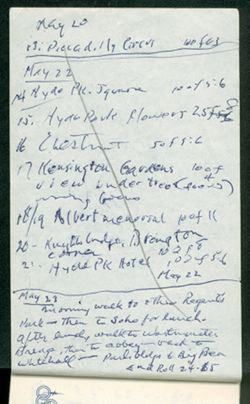 May 20
13. Piccadilly Circus
May 22
14 Hyde Pk. Square 10 of 5.6
15. Hyde Park flowers
16 Chestnut 5 of 5.6
17 Kensington Gardens 10 of
view under tree
18/19 Albert memorial 10 of 11
20- Knightsbridge, Brompton
corner
21. Hyde Pk Hotel
May 22
May 23
morning walk to Regents
Park - then to Soho for lunch.
After lunch, walk to Westminster
Bridge, then to abbey - back to
Whitehall - Parl. bldgs & Big Ben
End Roll 24-65